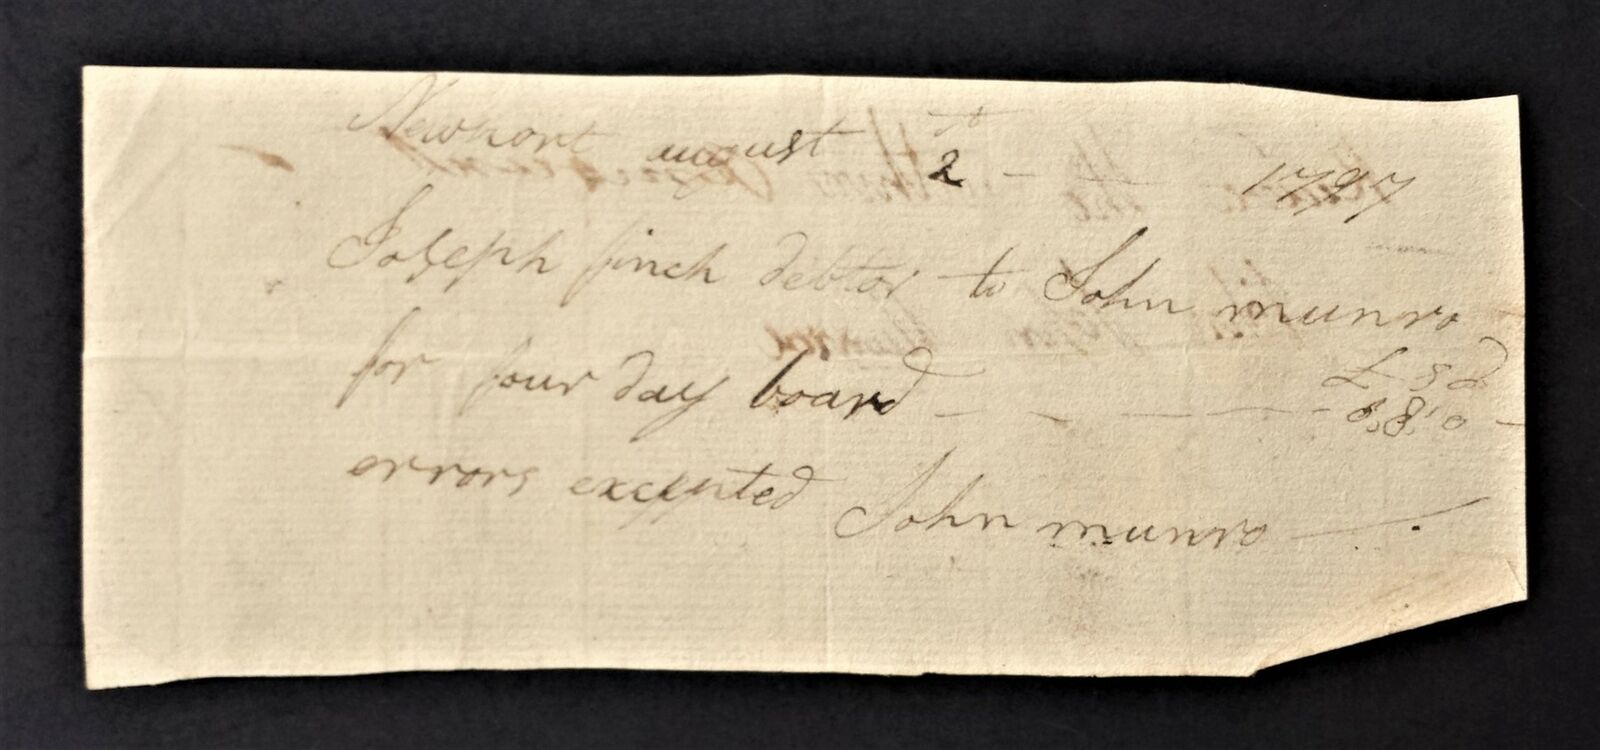 Newport august 2 - - 1797
Joseph finch debtor to John munro
for four day board - - - - - -
£ S D
0 : 8 : 0 -
errors excepted John munro